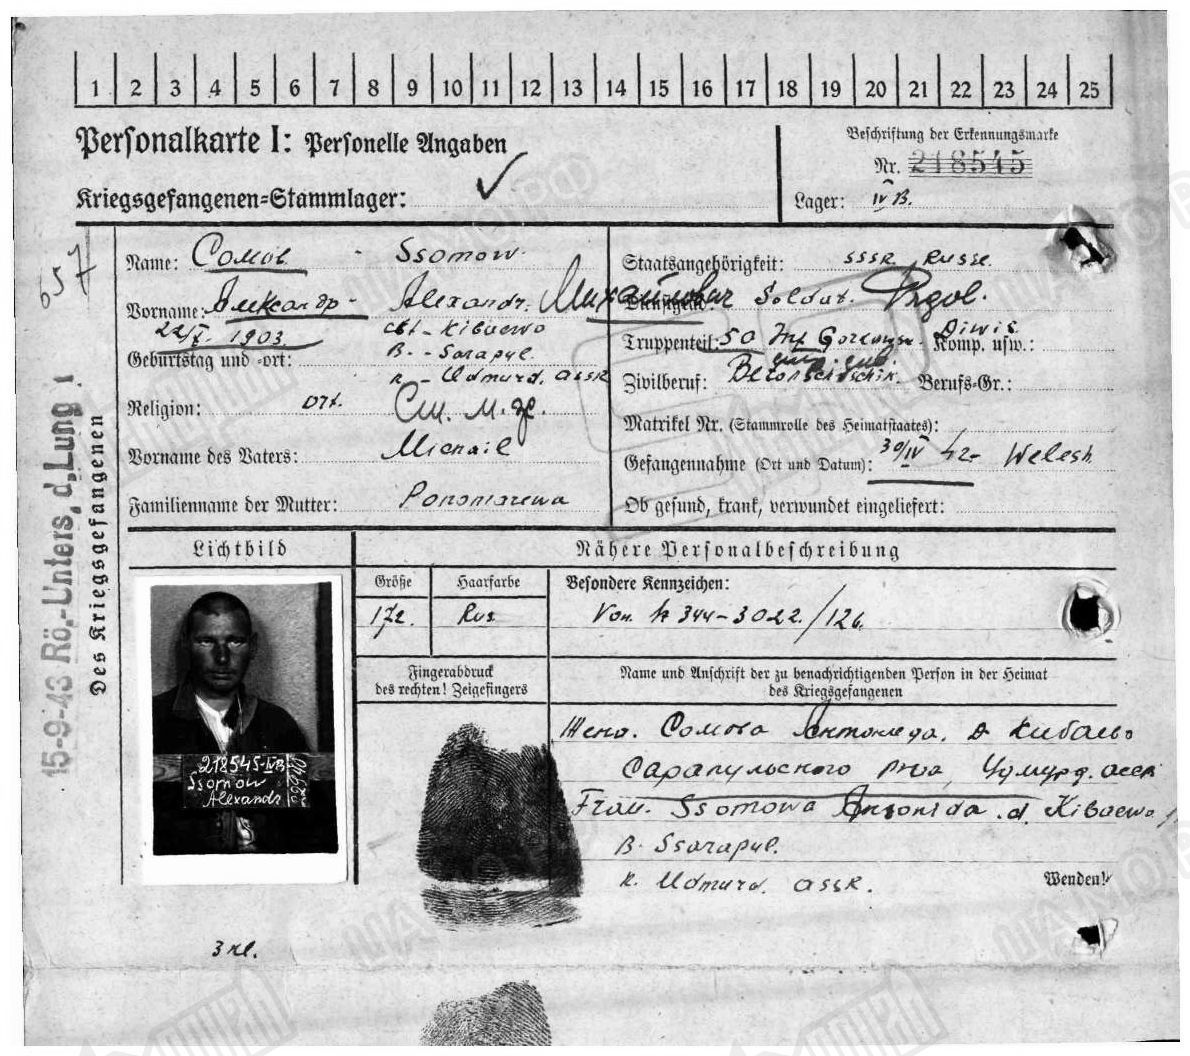 1 2 3 4 5 6 7 8 9 10 11 12 13 14 15 16 17 18 19 20 21 22 23 24 25
Personalkarte I: Personelle Angaben
Kriegsgefangenen-Stammlager:
Beschriftung der Erkennungsmarke
Nr. 218545
Lager: IV B.
657
15-9-43 Rö.-Unters. d. Lung
Des Kriegsgefangenen
Name: Сомов Ssomow
Vorname: Александр Alexandr. Михайлович
22/V. 1903. Kibaewo
Geburtstag und -ort: B. - Sarapul.
K - Udmurd. ASSR
Religion: Ort.
Vorname des Vaters: Michail
Familienname der Mutter: Ponomarewa
Staatsangehörigkeit: SSSR Russe.
Dienstgrad: Soldat.
Truppenteil: 50 Inf Diwis. Komp. usw.:
Zivilberuf: Berufs-Gr.:
Matrikel Nr. (Stammrolle des Heimatstaates):
Gefangennahme (Ort und Datum): 30/IV 42- Welesh
Ob gesund, krank, verwundet eingeliefert:
Lichtbild
Nähere Personalbeschreibung
Größe Haarfarbe Besondere Kennzeichen:
172. Rus Von 344-3022./126.
Fingerabdruck
des rechten! Zeigefingers
Name und Anschrift der zu benachrichtigenden Person in der Heimat
des Kriegsgefangenen
218545-IVB
Ssomow
Alexandr
Жена. Сомова Антонида. д Кибаево
Сарапульского р-на Удмурд. АССР
Frau. Ssomowa Antonida. d. Kibaewo
B. Ssarapul.
K. Udmurd. ASSR.
Wenden!